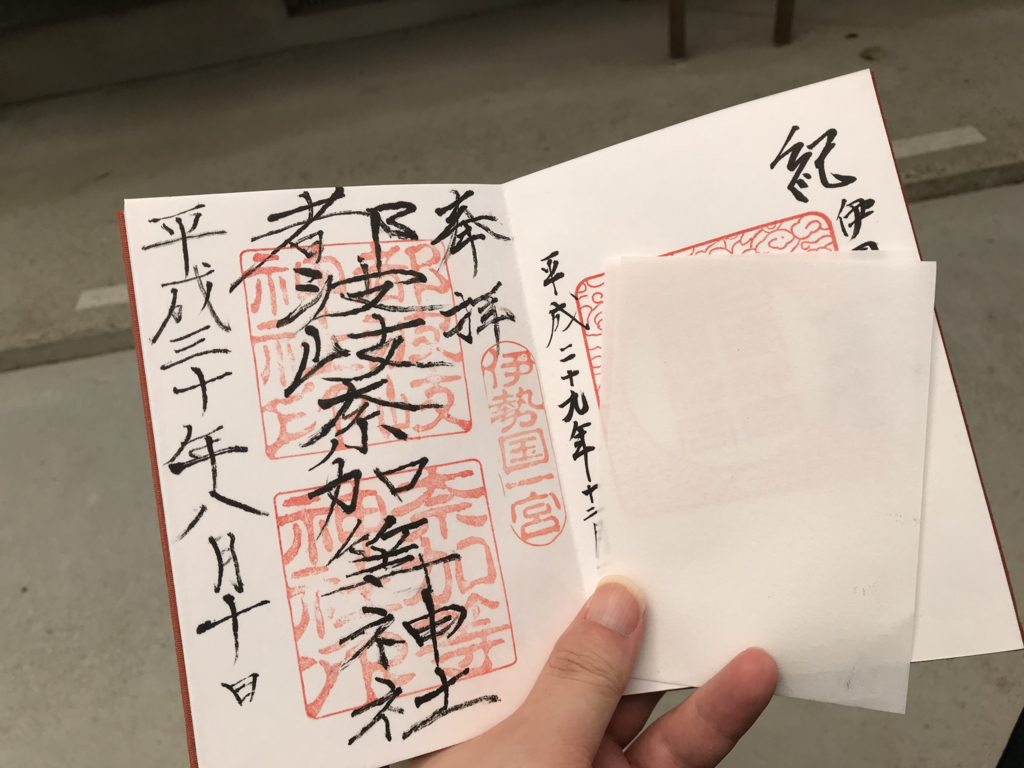 紀
伊
平成二十九年十二月
奉拝
伊勢国一宮
都波岐奈加等神社
都波岐
神社印
奈加等
神社印
平成三十年八月十日